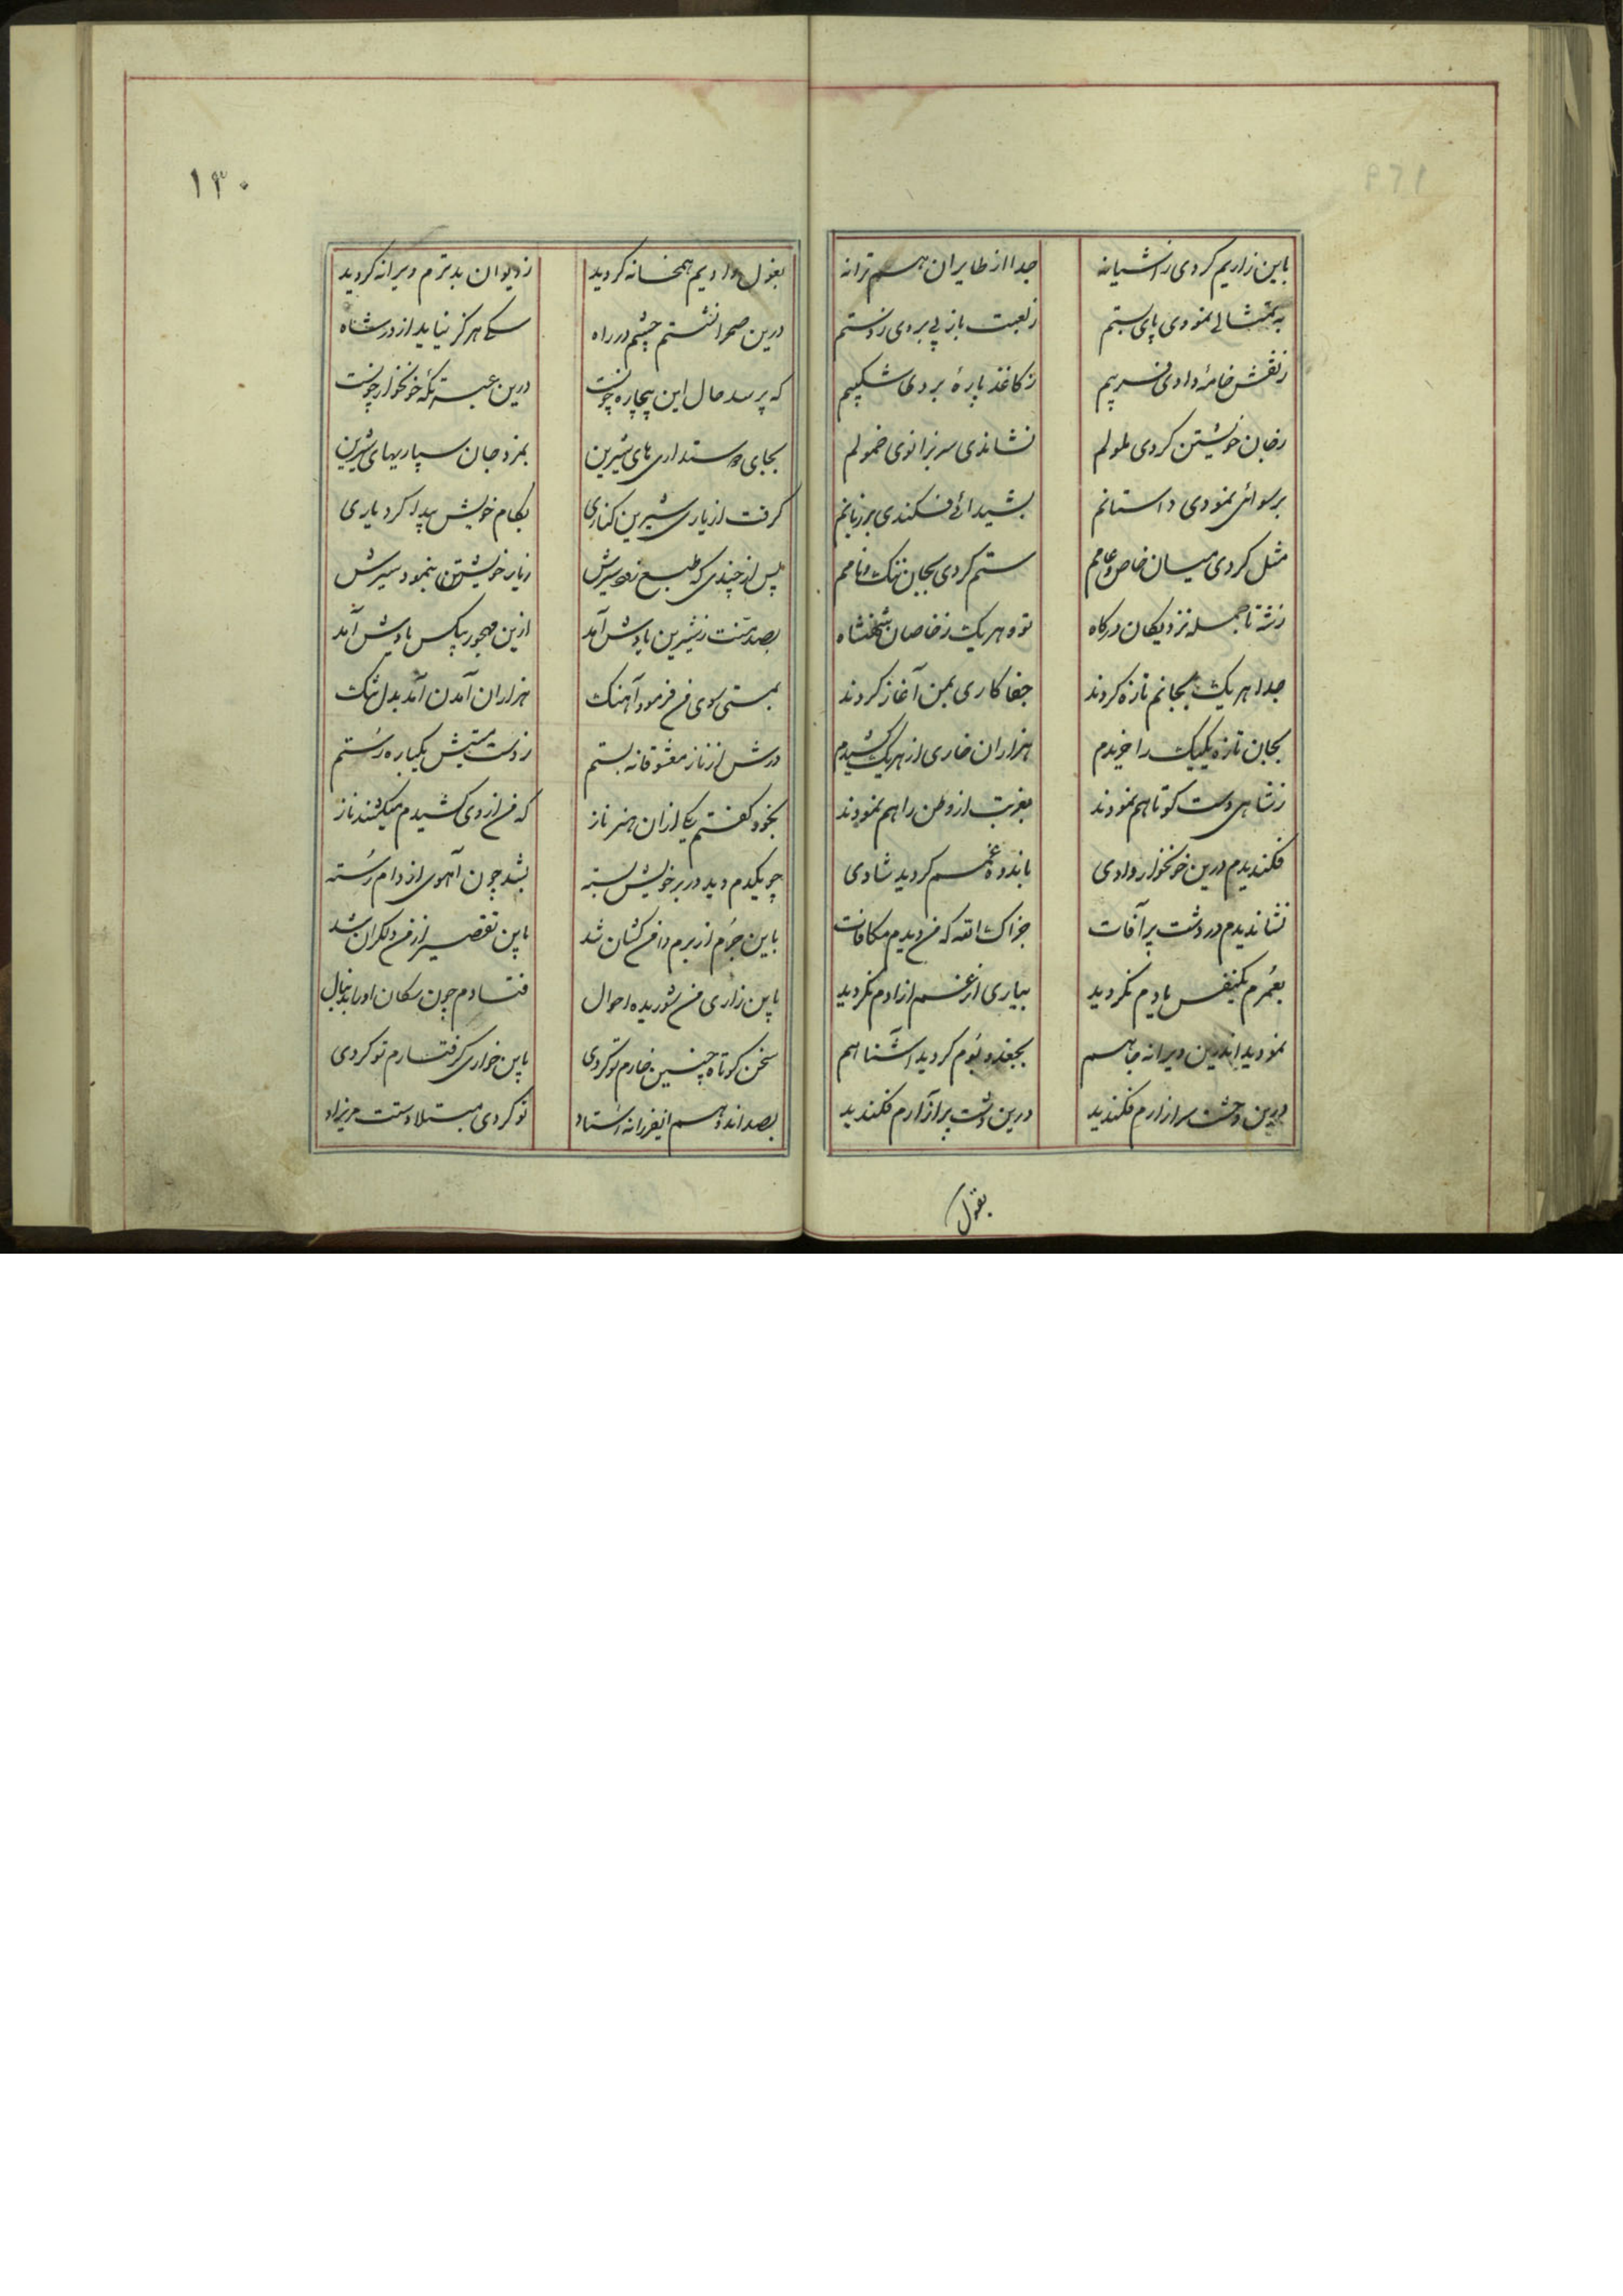 ۱۳۰
باین زاریم کردی ز آشیانه جدا از طایران هم ترانه
به تمثالی نمودی پای بستم ز لعبت بازیی بردی ز دستم
ز نقش خامهٔ دادی فریبم ز کاغذ پارهٔ بردی شکیبم
ز جان خویشتن کردی ملولم نشاندی سر بزانوی خمولم
برسوائی نمودی داستانم بشیدائی فکندی بر زبانم
مثل کردی میان خاص و عامم ستم کردی بجان ننگ و نامم
ز شه تا جمله نزدیکان درکاه تو و هر یک ز خاصان شهنشاه
جدا هر یک بجانم تازه کردند جفا کاری بمن آغاز کردند
بجان تازه یکیک را خریدم هزاران خاری از هر یک کشیدم
ز شاهی دست کوتاهم نمودند بغربت از وطن راهم نمودند
فکندیدم درین خونخوار وادی باندوه و غمم کردید شادی
نشاندیدم در دشت پر آفات جزاک الله که من دیدم مکافات
بعمرم یکنفس یادم نکردید بیاری از غم ازادم نکردید
نمودید اندرین ویرانه جا هم بجغد و بوم کردید آشنا هم
درین وحشت سرا زارم فکندید درین دشت پر آزارم فکندید
بغول
بغول وادیم همخانه کردید ز دیوان بدترم ویرانه کردید
درین صحرا نشستم چشم در راه کسی هرگز نیاید از در شاه
که پرسد حال این بیچاره چونست درین عبرتگه خونخوار چونست
بجای دوستداری های شیرین بمزد جان سپاریهای شیرین
گرفت از یاری شیرین کناری بکام خویش پیدا کرد یاری
پس از چندی که طبع زود سیرش ز یار خویشتن بنمود سیرش
بصد منت ز شیرین یادش آمد ازین مهجور بیکس یادش آمد
بمستی سوی من فرمود آهنگ هزاران آمدن آمد بدل تنگ
درش از ناز معشوقانه بستم ز دست مستیش یکباره رستم
بخود گفتم یکی از ان هنر ناز که من از وی کشیدم میکشند ناز
چو یکدم دید در بر خویش بسته بشد چون آهوی از دام رسته
باین جرم از برم دامن کشان شد باین تقصیر از من دلگران شد
باین زاری من شوریده احوال فتادم چون سگان او را بدنبال
سخن کوتاه چنین خارم تو کردی باین خواری گرفتارم تو کردی
بصد اندوهم ایفرزانه استاد تو کردی مبتلا دستت مریزاد